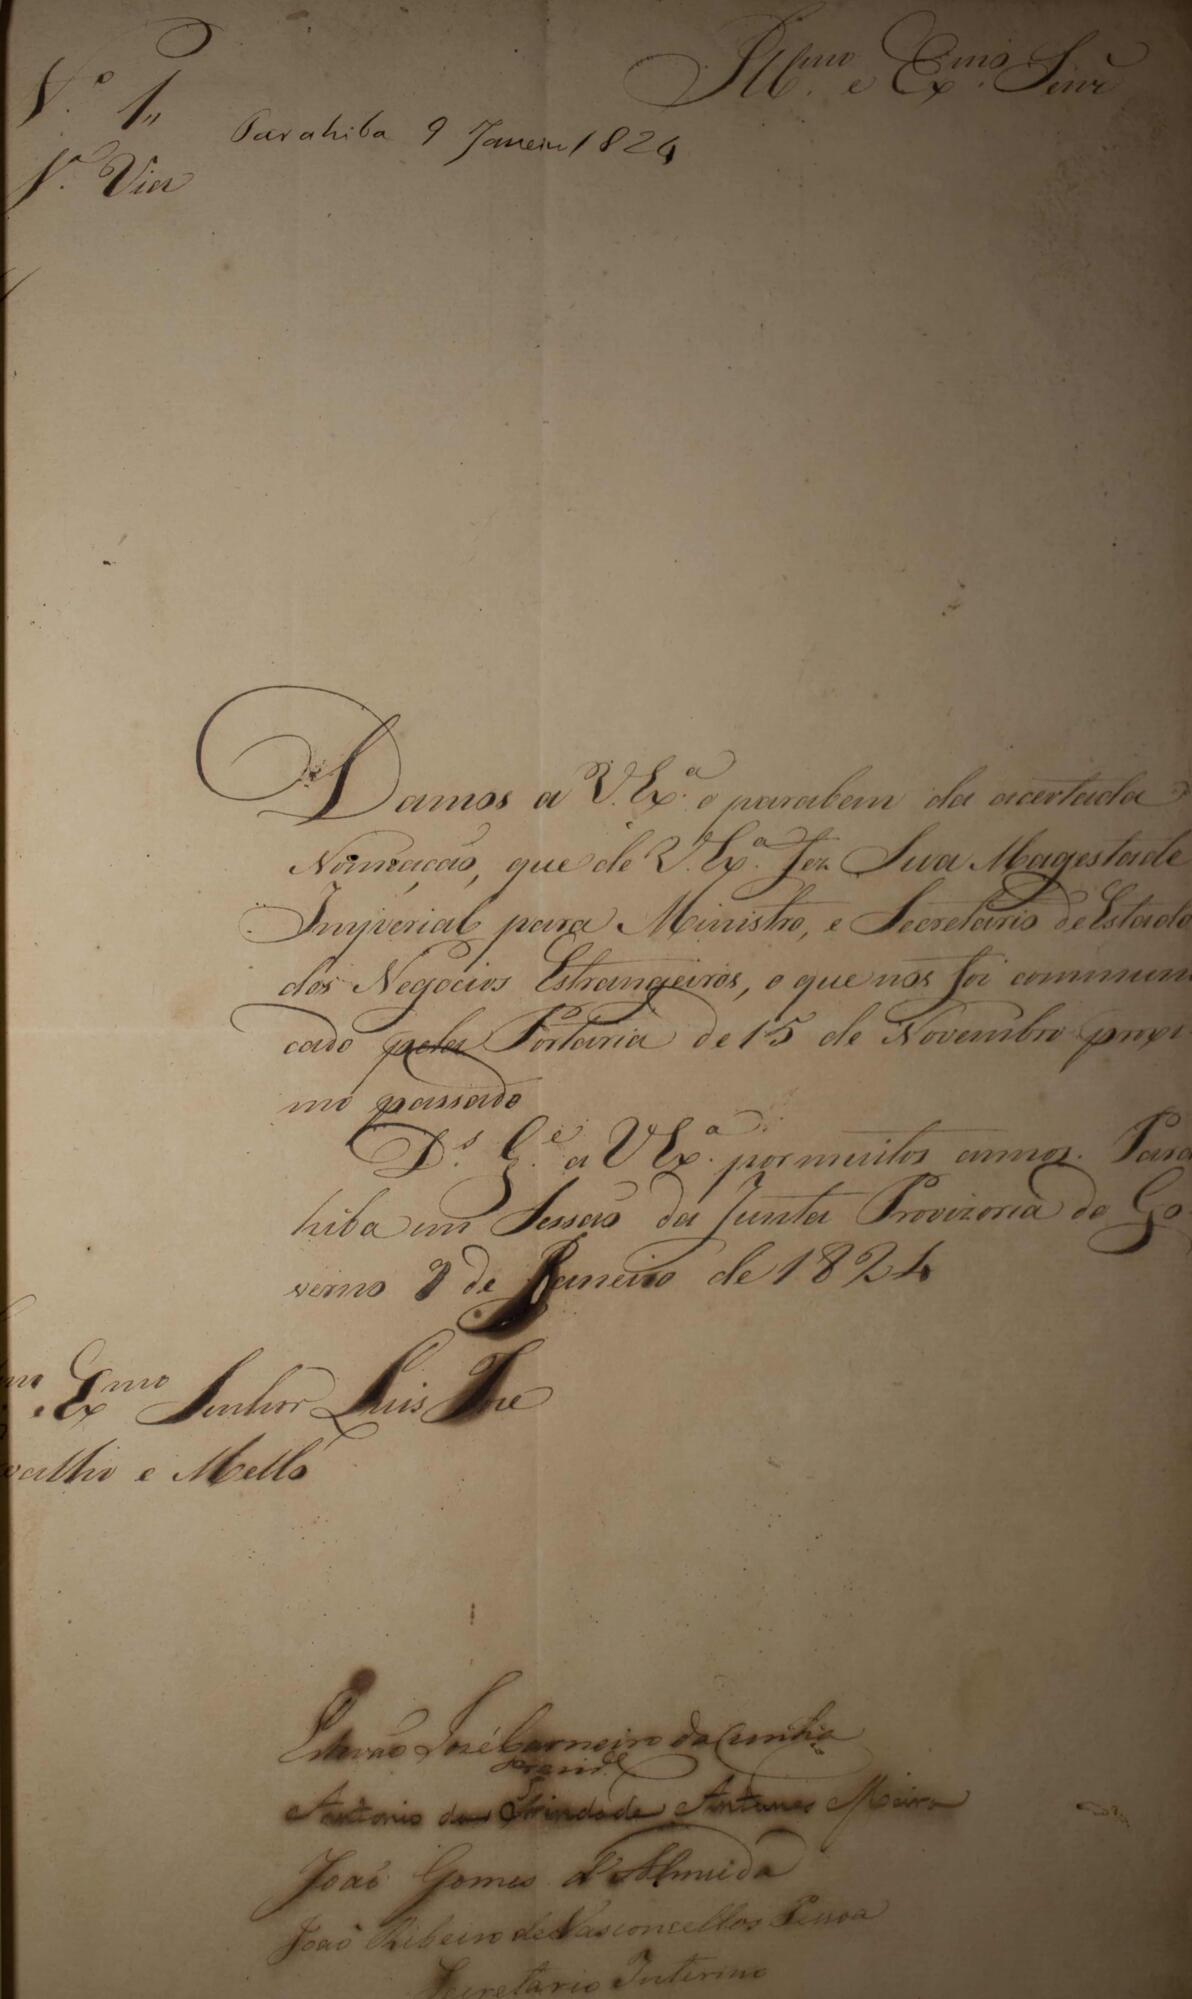 N.º 1,,
Illmo. e Exmo. Senr.
Parahiba 9 Janeiro 1824
1.ª Via
Damos a V. Ex.ª o parabem da acertada
Nomeação, que de V. Ex.ª fez Sua Magestade
Imperial para Ministro, e Secretario de Estado
dos Negocios Estrangeiros, o que nos foi communi
cado pela Portaria de 15 de Novembro proxi
mo passado
D.s G.e a V Ex.ª por muitos annos. Para
hiba em Sessão da Junta Provizoria do Go
verno 9 de Janeiro de 1824
mo e Exmo Senhor Luis Jose
valho e Mello
Estevão José Carneiro da Cunha
Presid.e
Antonio da Trindade Antunes Meira
João Gomes d'Almeida
João Ribeiro de Vasconcellos Pessoa
Secretario Interino